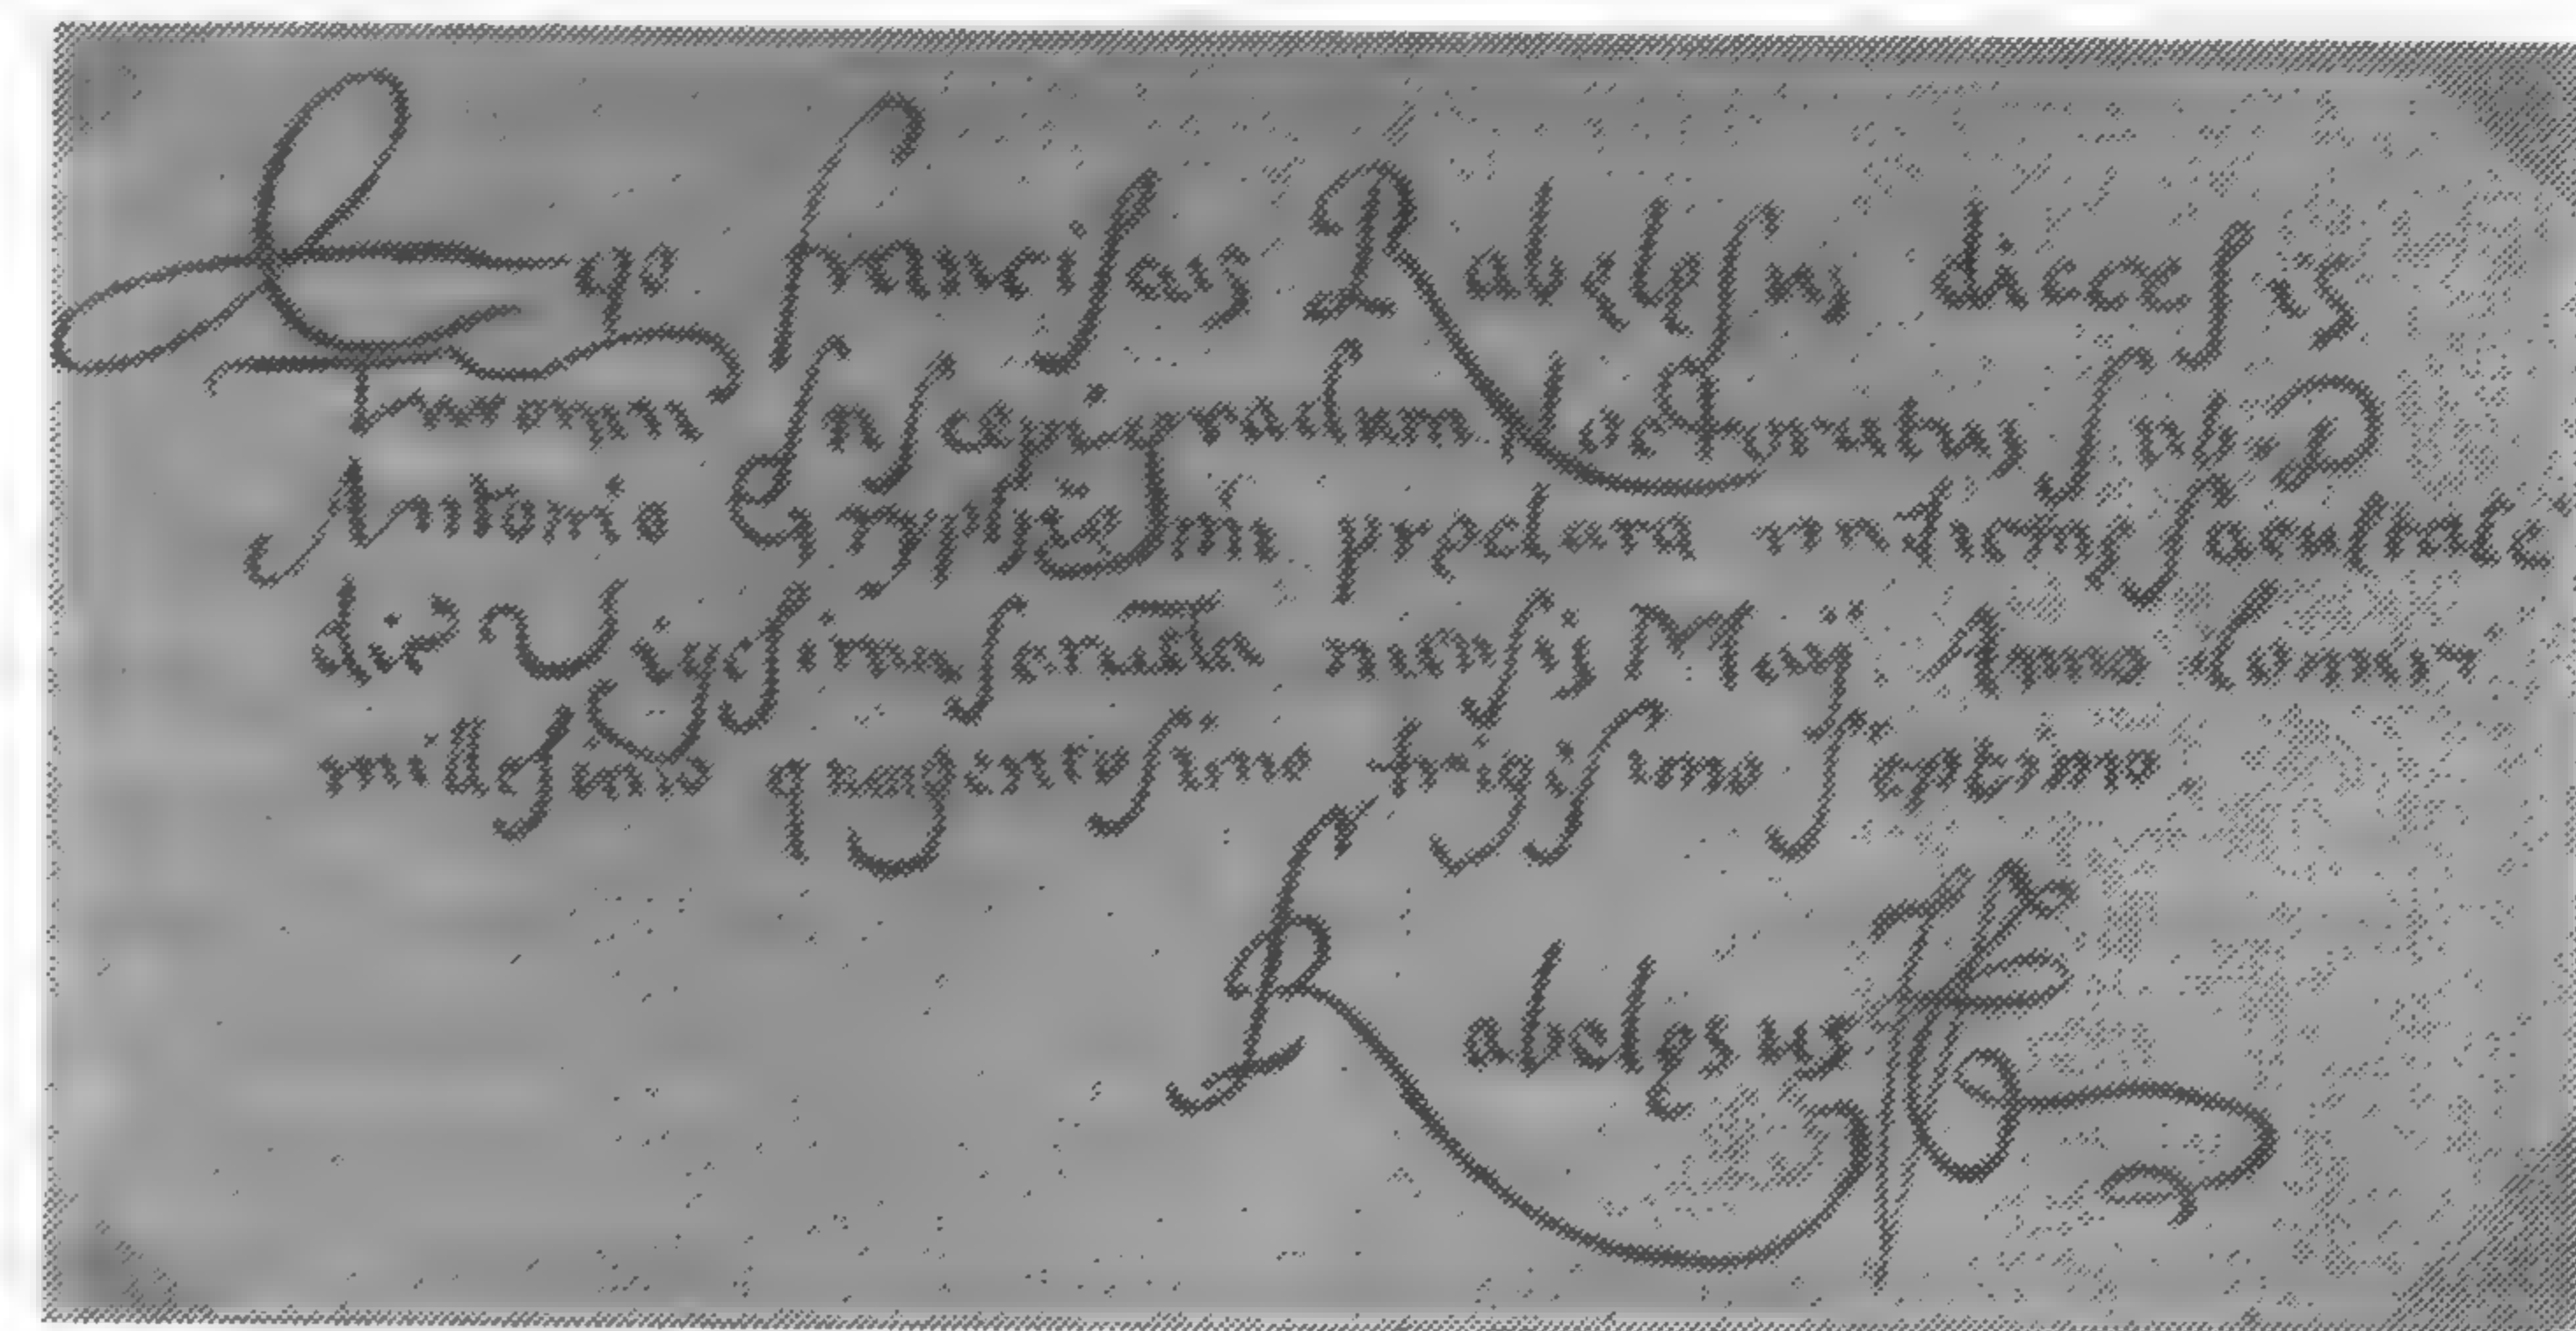 Ego franciscus Rabelęsus diocesis
Turonen Suscepi gradum doctoratus sub D
Antonio Gryphio in pręclara medicinę facultate
die Vigesima secunda mensis Maij Anno domini
millesimo quingentesimo trigesimo septimo
Rabelęsus